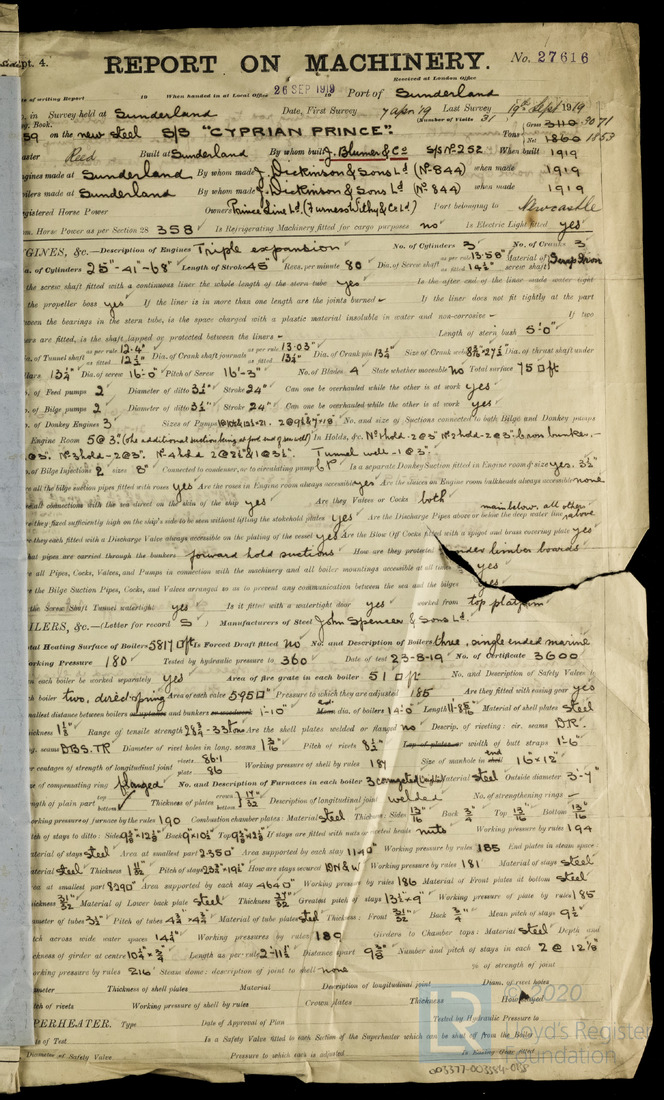 pt. 4.
REPORT ON MACHINERY.
No. 27616
Received at London Office
of writing Report 19 When handed in at Local Office 26 SEP 1919 19 Port of Sunderland
in Survey held at Sunderland Date, First Survey 7 Apr 19 Last Survey 19th Sept 1919
Book. (Number of Visits 31
59 on the new Steel S/S "CYPRIAN PRINCE". Tons Gross 3110 3071
Net 1860 1853
Master Reed Built at Sunderland By whom built J. Blumer & Co S/S No 252 When built 1919
Engines made at Sunderland By whom made J. Dickinson & Sons Ld (No 844) when made 1919
Boilers made at Sunderland By whom made J. Dickinson & Sons Ld (No 844) when made 1919
Registered Horse Power Owners Prince Line Ld. (Furness Withy & Co Ld) Port belonging to Newcastle
Horse Power as per Section 28 358 Is Refrigerating Machinery fitted for cargo purposes no Is Electric Light fitted yes
GINES, &c.—Description of Engines Triple expansion No. of Cylinders 3 No. of Cranks 3
of Cylinders 25"-41"-68" Length of Stroke 45 Revs. per minute 80 Dia. of Screw shaft as per rule 13.58" as fitted 14¼" Material of screw shaft Scrap Iron
the screw shaft fitted with a continuous liner the whole length of the stern tube yes Is the after end of the liner made water tight
the propeller boss yes If the liner is in more than one length are the joints burned – If the liner does not fit tightly at the part
between the bearings in the stern tube, is the space charged with a plastic material insoluble in water and non-corrosive – If two
liners are fitted, is the shaft lapped or protected between the liners – Length of stern bush 5'0"
Dia. of Tunnel shaft as per rule 12.4" as fitted Dia. of Crank shaft journals as per rule 13.03" as fitted Dia. of Crank pin 13¼" Size of Crank webs Dia. of thrust shaft under
collars 13¼" Dia. of screw 16'-0" Pitch of Screw 16'-3" No. of Blades 4 State whether moveable no Total surface 75 □ft
of Feed pumps 2 Diameter of ditto 3½" Stroke 24" Can one be overhauled while the other is at work yes
of Bilge pumps 2 Diameter of ditto 3½" Stroke 24" Can one be overhauled while the other is at work yes
of Donkey Engines 3 Sizes of Pumps No. and size of Suctions connected to both Bilge and Donkey pumps
Engine Room 5 @ 3" In Holds, &c. No 1 hold - 2 @ 3" No 2 hold - 2 @ 3"
No 3 hold - 2 @ 3". No 4 hold Tunnel well - 1 @ 3".
of Bilge Injections 2 sizes 8" Connected to condenser, or to circulating pump Is a separate Donkey Suction fitted in Engine room & size yes. 3½"
all the bilge suction pipes fitted with roses yes Are the roses in Engine room always accessible yes Are the sluices on Engine room bulkheads always accessible none
all connections with the sea direct on the skin of the ship yes Are they Valves or Cocks both
main below, all other above
they fixed sufficiently high on the ship's side to be seen without lifting the stokehold plates yes Are the Discharge Pipes above or below the deep water line
they each fitted with a Discharge Valve always accessible on the plating of the vessel yes Are the Blow Off Cocks fitted with a spigot and brass covering plate yes
What pipes are carried through the bunkers forward hold suctions How are they protected under limber boards
all Pipes, Cocks, Valves, and Pumps in connection with the machinery and all boiler mountings accessible at all times yes
the Bilge Suction Pipes, Cocks, and Valves arranged so as to prevent any communication between the sea and the bilges yes
the Screw Shaft Tunnel watertight yes Is it fitted with a watertight door yes worked from top platform
ILERS, &c.—(Letter for record S) Manufacturers of Steel John Spencer & Sons Ld.
Total Heating Surface of Boilers 5817 □ft Is Forced Draft fitted no No. and Description of Boilers three, single ended marine
Working Pressure 180 Tested by hydraulic pressure to 360 Date of test 23-8-19 No. of Certificate 3600
each boiler be worked separately yes Area of fire grate in each boiler 51 □ft No. and Description of Safety Valves to
each boiler two, direct spring Area of each valve 5.95 □" Pressure to which they are adjusted 185 Are they fitted with easing gear yes
Smallest distance between boilers and bunkers 1'-10" dia. of boilers 14'-0" Length Material of shell plates Steel
Range of tensile strength Are the shell plates welded or flanged no Descrip. of riveting: cir. seams D.R.
seams DBS.TR Diameter of rivet holes in long. seams Pitch of rivets width of butt straps 1'-6"
percentages of strength of longitudinal joint rivets 86.1 plate 86 Working pressure of shell by rules 187 Size of manhole in end 16" × 12"
of compensating ring flanged No. and Description of Furnaces in each boiler 3 corrugated Material steel Outside diameter 3'-7"
Length of plain part top bottom Thickness of plates crown bottom Description of longitudinal joint welded No. of strengthening rings –
Working pressure of furnace by the rules 190 Combustion chamber plates: Material steel Thickness: Sides 13/16" Back 3/4" Top 13/16" Bottom 13/16"
Pitch of stays to ditto: Sides Back Top If stays are fitted with nuts or riveted heads nuts Working pressure by rules 194
Material of stays steel Area at smallest part 2.35□" Area supported by each stay Working pressure by rules 185 End plates in steam space:
Material steel Thickness Pitch of stays How are stays secured DN & W Working pressure by rules 181 Material of stays steel
Area at smallest part Area supported by each stay Working pressure by rules 186 Material of Front plates at bottom steel
Thickness Material of Lower back plate Steel Thickness Greatest pitch of stays 13½" × 9" Working pressure of plate by rules 185
Diameter of tubes 3½" Pitch of tubes Material of tube plates steel Thickness: Front 31/32" Back 3/4" Mean pitch of stays 9½"
Pitch across wide water spaces 14¼" Working pressures by rules 189 Girders to Chamber tops: Material Steel Depth and
thickness of girder at centre Length as per rule Distance apart Number and pitch of stays in each 2 @
Working pressure by rules 216 Steam dome: description of joint to shell none % of strength of joint
Diameter Thickness of shell plates Material Description of longitudinal joint Diam. of rivet holes
Pitch of rivets Working pressure of shell by rules Crown plates Thickness How stayed
PERHEATER. Type Date of Approval of Plan Tested by Hydraulic Pressure to
Date of Test Is a Safety Valve fitted to each Section of the Superheater which can be shut off from the Boiler
Diameter of Safety Valve Pressure to which each is adjusted Is Easing Gear fitted
© 2020
LR
Lloyd's Register
Foundation
003377-003384-0188